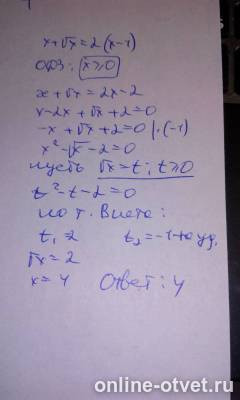 x+√x=2(x-1)
ОДЗ: x≥0
x+√x=2x-2
x-2x+√x+2=0
-x+√x+2=0 |·(-1)
x²-√x-2=0
пусть √x=t; t≥0
t²-t-2=0
по т. Виета:
t₁=2 t₂=-1 не уд.
√x=2
x=4 Ответ: 4
online-otvet.ru